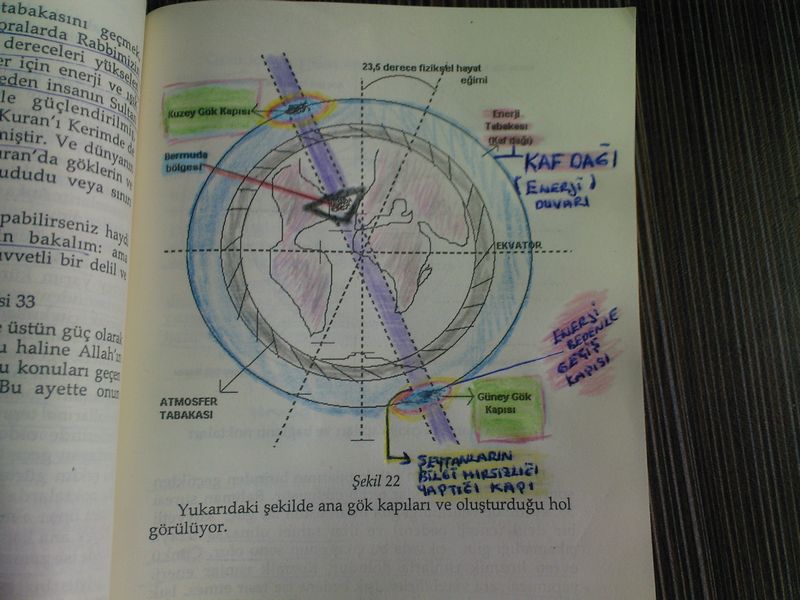 tabakasını geçmek
oralarda Rabbimizin
dereceleri yükselen
er için enerji ve ışık
eden insanın Sultan
le güçlendirilmiş
Kuran'ı Kerimde de
miştir. Ve dünyanın
uran'da göklerin ve
ududu veya sınırı
pabilirseniz haydi
n bakalım: ama
uvvetli bir delil ve
si 33
e üstün güç olarak
u haline Allah'ın
u konuları geçen
Bu ayette onun
23,5 derece fiziksel hayat
eğimi
Kuzey Gök Kapısı
Enerji
Tabakası
(Kaf dağı)
KAF DAĞI
(ENERJİ)
DUVARI
Bermuda
bölgesi
EKVATOR
ENERJİ
BEDENLE
GEÇİŞ
KAPISI
ATMOSFER
TABAKASI
Güney Gök
Kapısı
ŞEYTANLARIN
BİLGİ HIRSIZLIĞI
YAPTIĞI KAPI
Şekil 22
Yukarıdaki şekilde ana gök kapıları ve oluşturduğu hol
görülüyor.